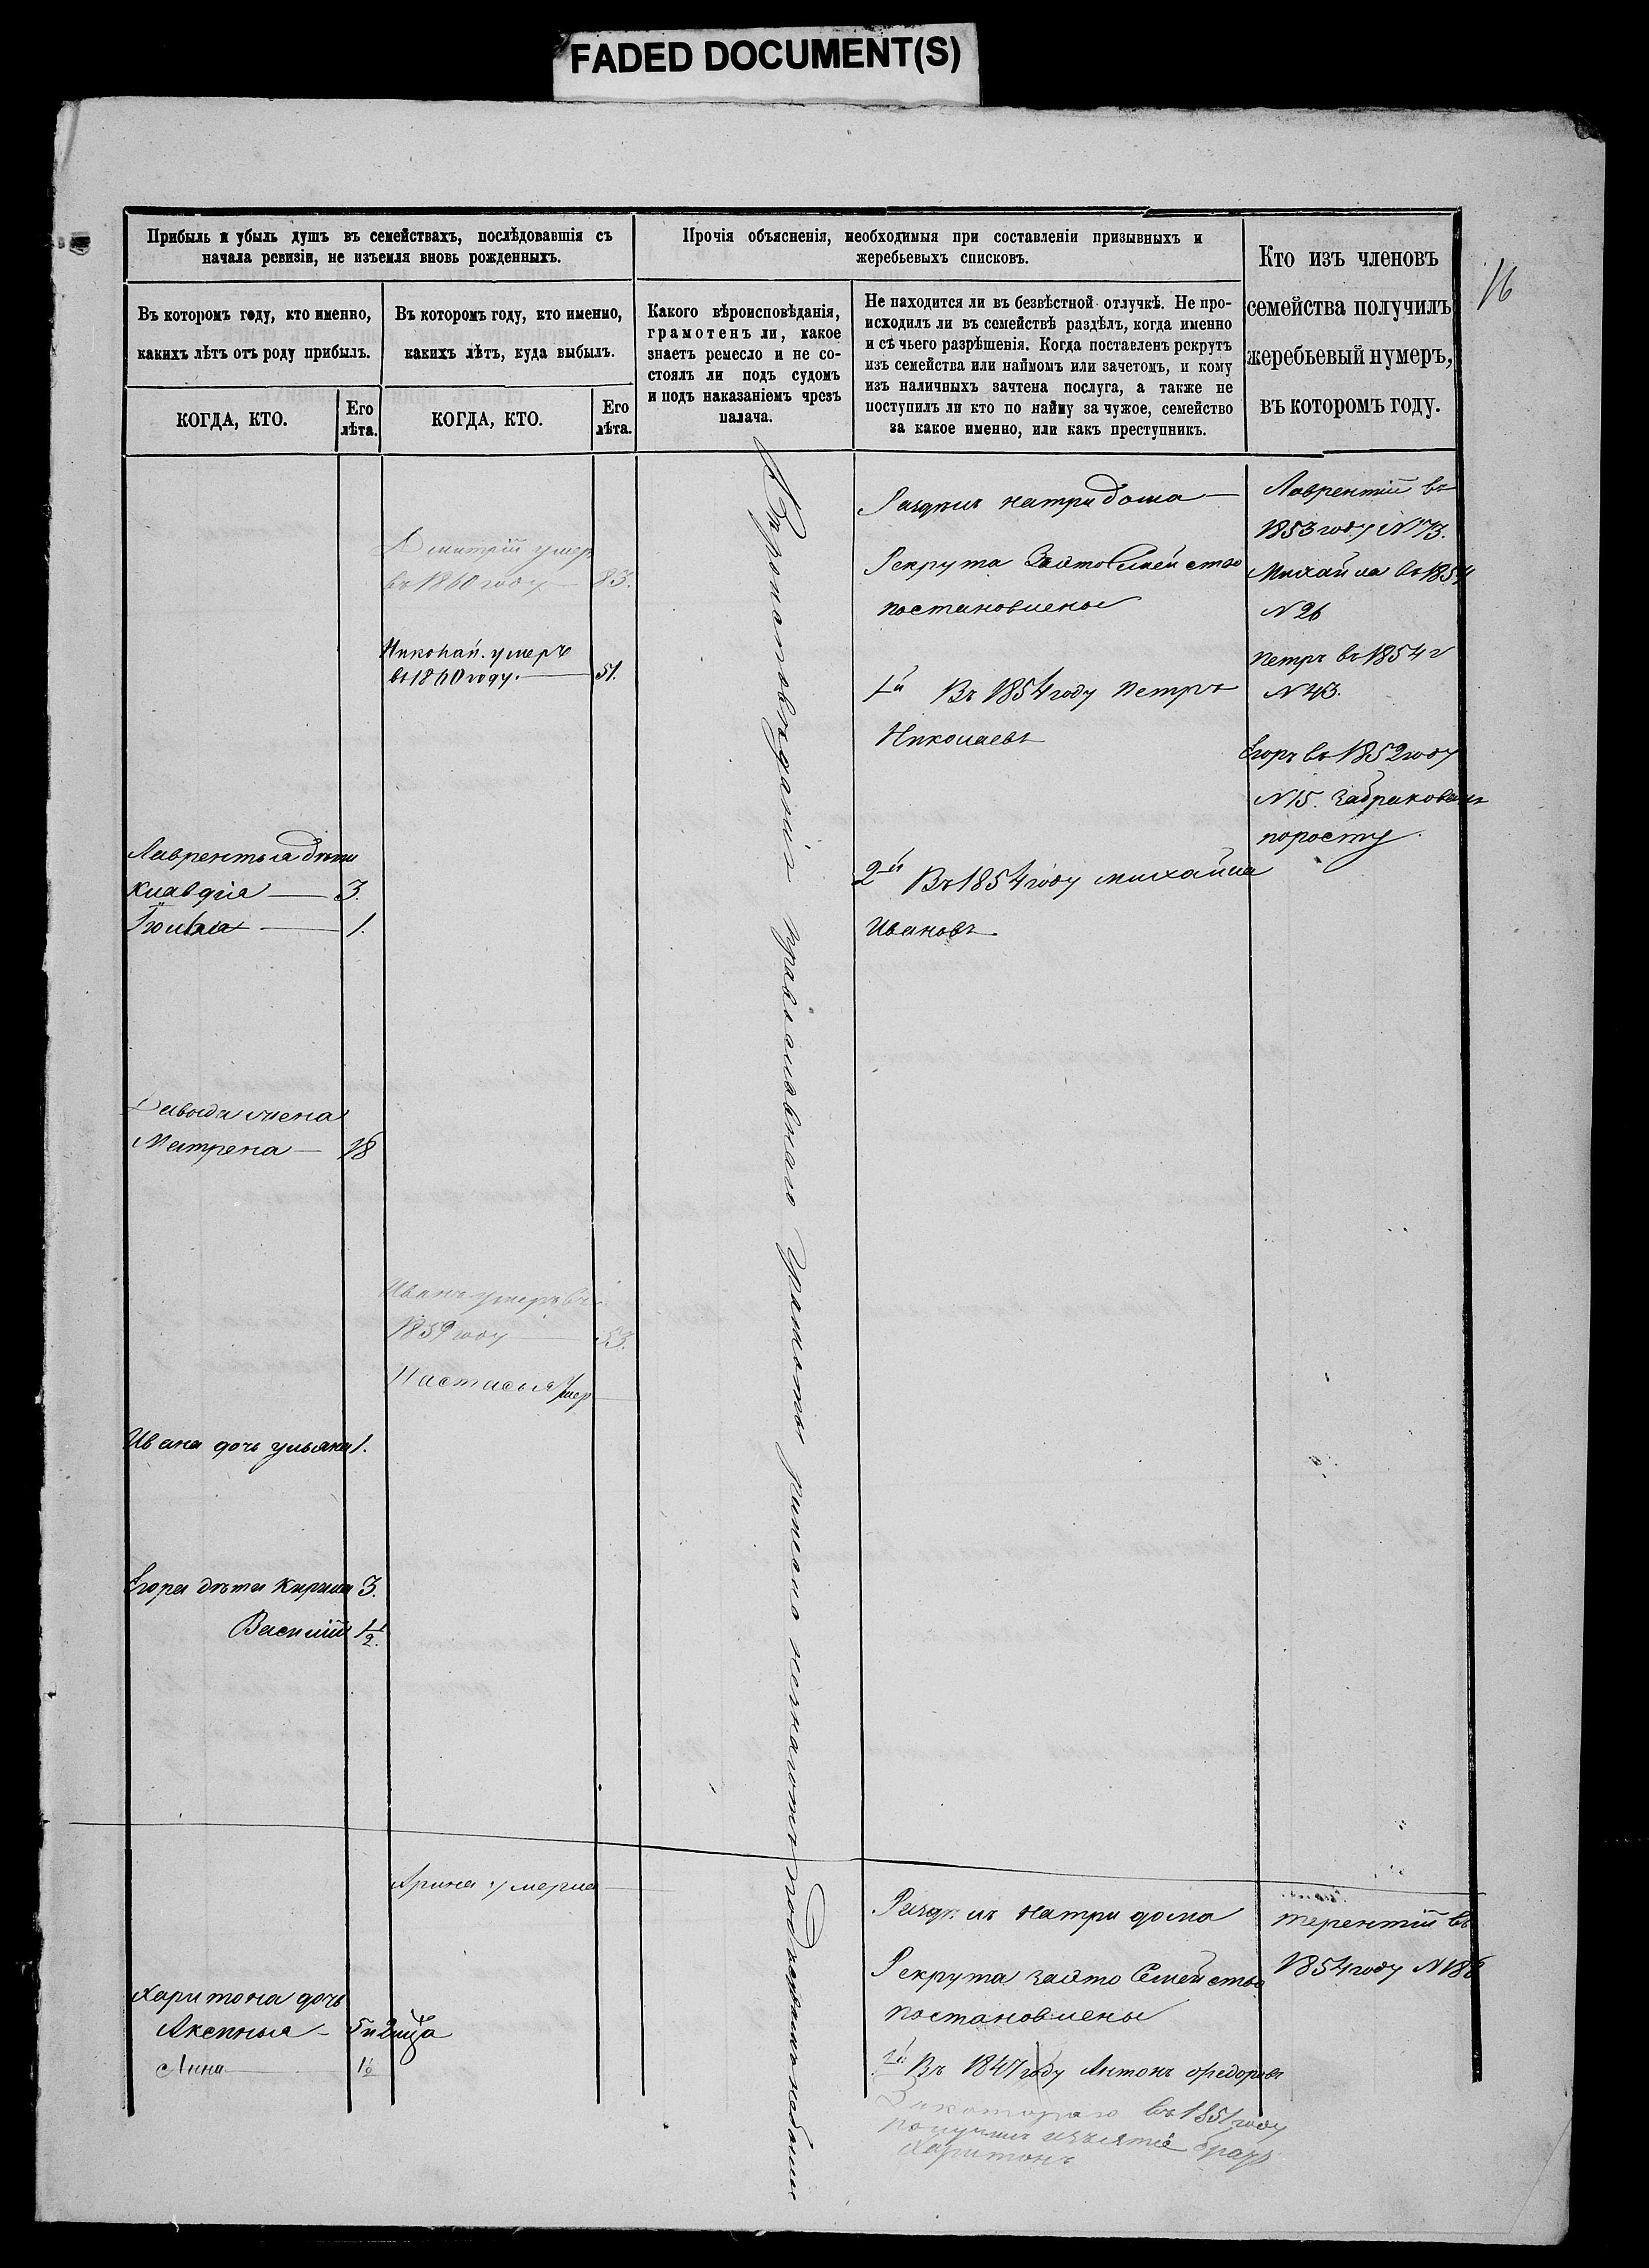 FADED DOCUMENT(S)
16
Прибыль и убыль душъ въ семействахъ, послѣдовавшія съ
начала ревизіи, не изъемля вновь рожденныхъ.
Въ которомъ году, кто именно,
какихъ лѣтъ отъ роду прибылъ.
КОГДА, КТО.
Его
лѣта.
Въ которомъ году, кто именно,
какихъ лѣтъ, куда выбылъ.
КОГДА, КТО.
Его
лѣта.
Прочія объясненія, необходимыя при составленіи призывныхъ и
жеребьевыхъ списковъ.
Какого вѣроисповѣданія,
грамотенъ ли, какое
знаетъ ремесло и не со-
стоялъ ли подъ судомъ
и подъ наказаніемъ чрезъ
палача.
Не находится ли въ безвѣстной отлучкѣ. Не про-
исходилъ ли въ семействѣ раздѣлъ, когда именно
и съ чьего разрѣшенія. Когда поставленъ рекрутъ
изъ семейства или наймомъ или зачетомъ, и кому
изъ наличныхъ зачтена послуга, а также не
поступилъ ли кто по найму за чужое, семейство
за какое именно, или какъ преступникъ.
Кто изъ членовъ
семейства получилъ
жеребьевый нумеръ,
въ которомъ году.
Лаврентья дѣти
Клавдія — 3.
1.
Давыда жена
Матрена — 18
Ивана дочь ульяна 1.
Егора дѣти Кирила 3.
Василій 1/2.
Харитона дочь
Аксинья —
Анна — 1½
Дмитрій умер
въ 1860 году — 83.
Николай. умеръ
въ 1860 году. — 51.
Иванъ умеръ въ
1859 году — 53.
Настасья умер
Арина умерла —
Вѣроисповѣданія православнаго Грамоты
Раздѣлъ на три дома —
Рекрута за это Семейство
постановлено
1й Въ 1854 году Петръ
Николаевъ
2й Въ 1854 году михайла
Ивановъ.
Раздѣлъ на три дома
Рекрута за это Семейство
постановлены
1й Въ 1847 году Антонъ Федоровъ
За котораго въ 1851 году
получилъ изъятіе братъ
Харитонъ
Лаврентій въ
1853 году № 73.
Михайла въ 1854
№ 26
Петръ въ 1854 г
№ 43.
Егоръ въ 1852 году
№ 15. Забракованъ
по росту.
терентій въ
1854 году №